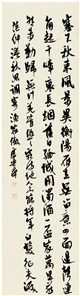 塞下秋来風景異衡陽雁去無留意四面邊聲連
角起千嶂裏長煙落日孤城閉濁酒一盃家萬里燕
然未勒歸無計羌管悠悠霜滿地人不寐將軍白髮征夫淚
范仲淹秋思調寄漁家傲